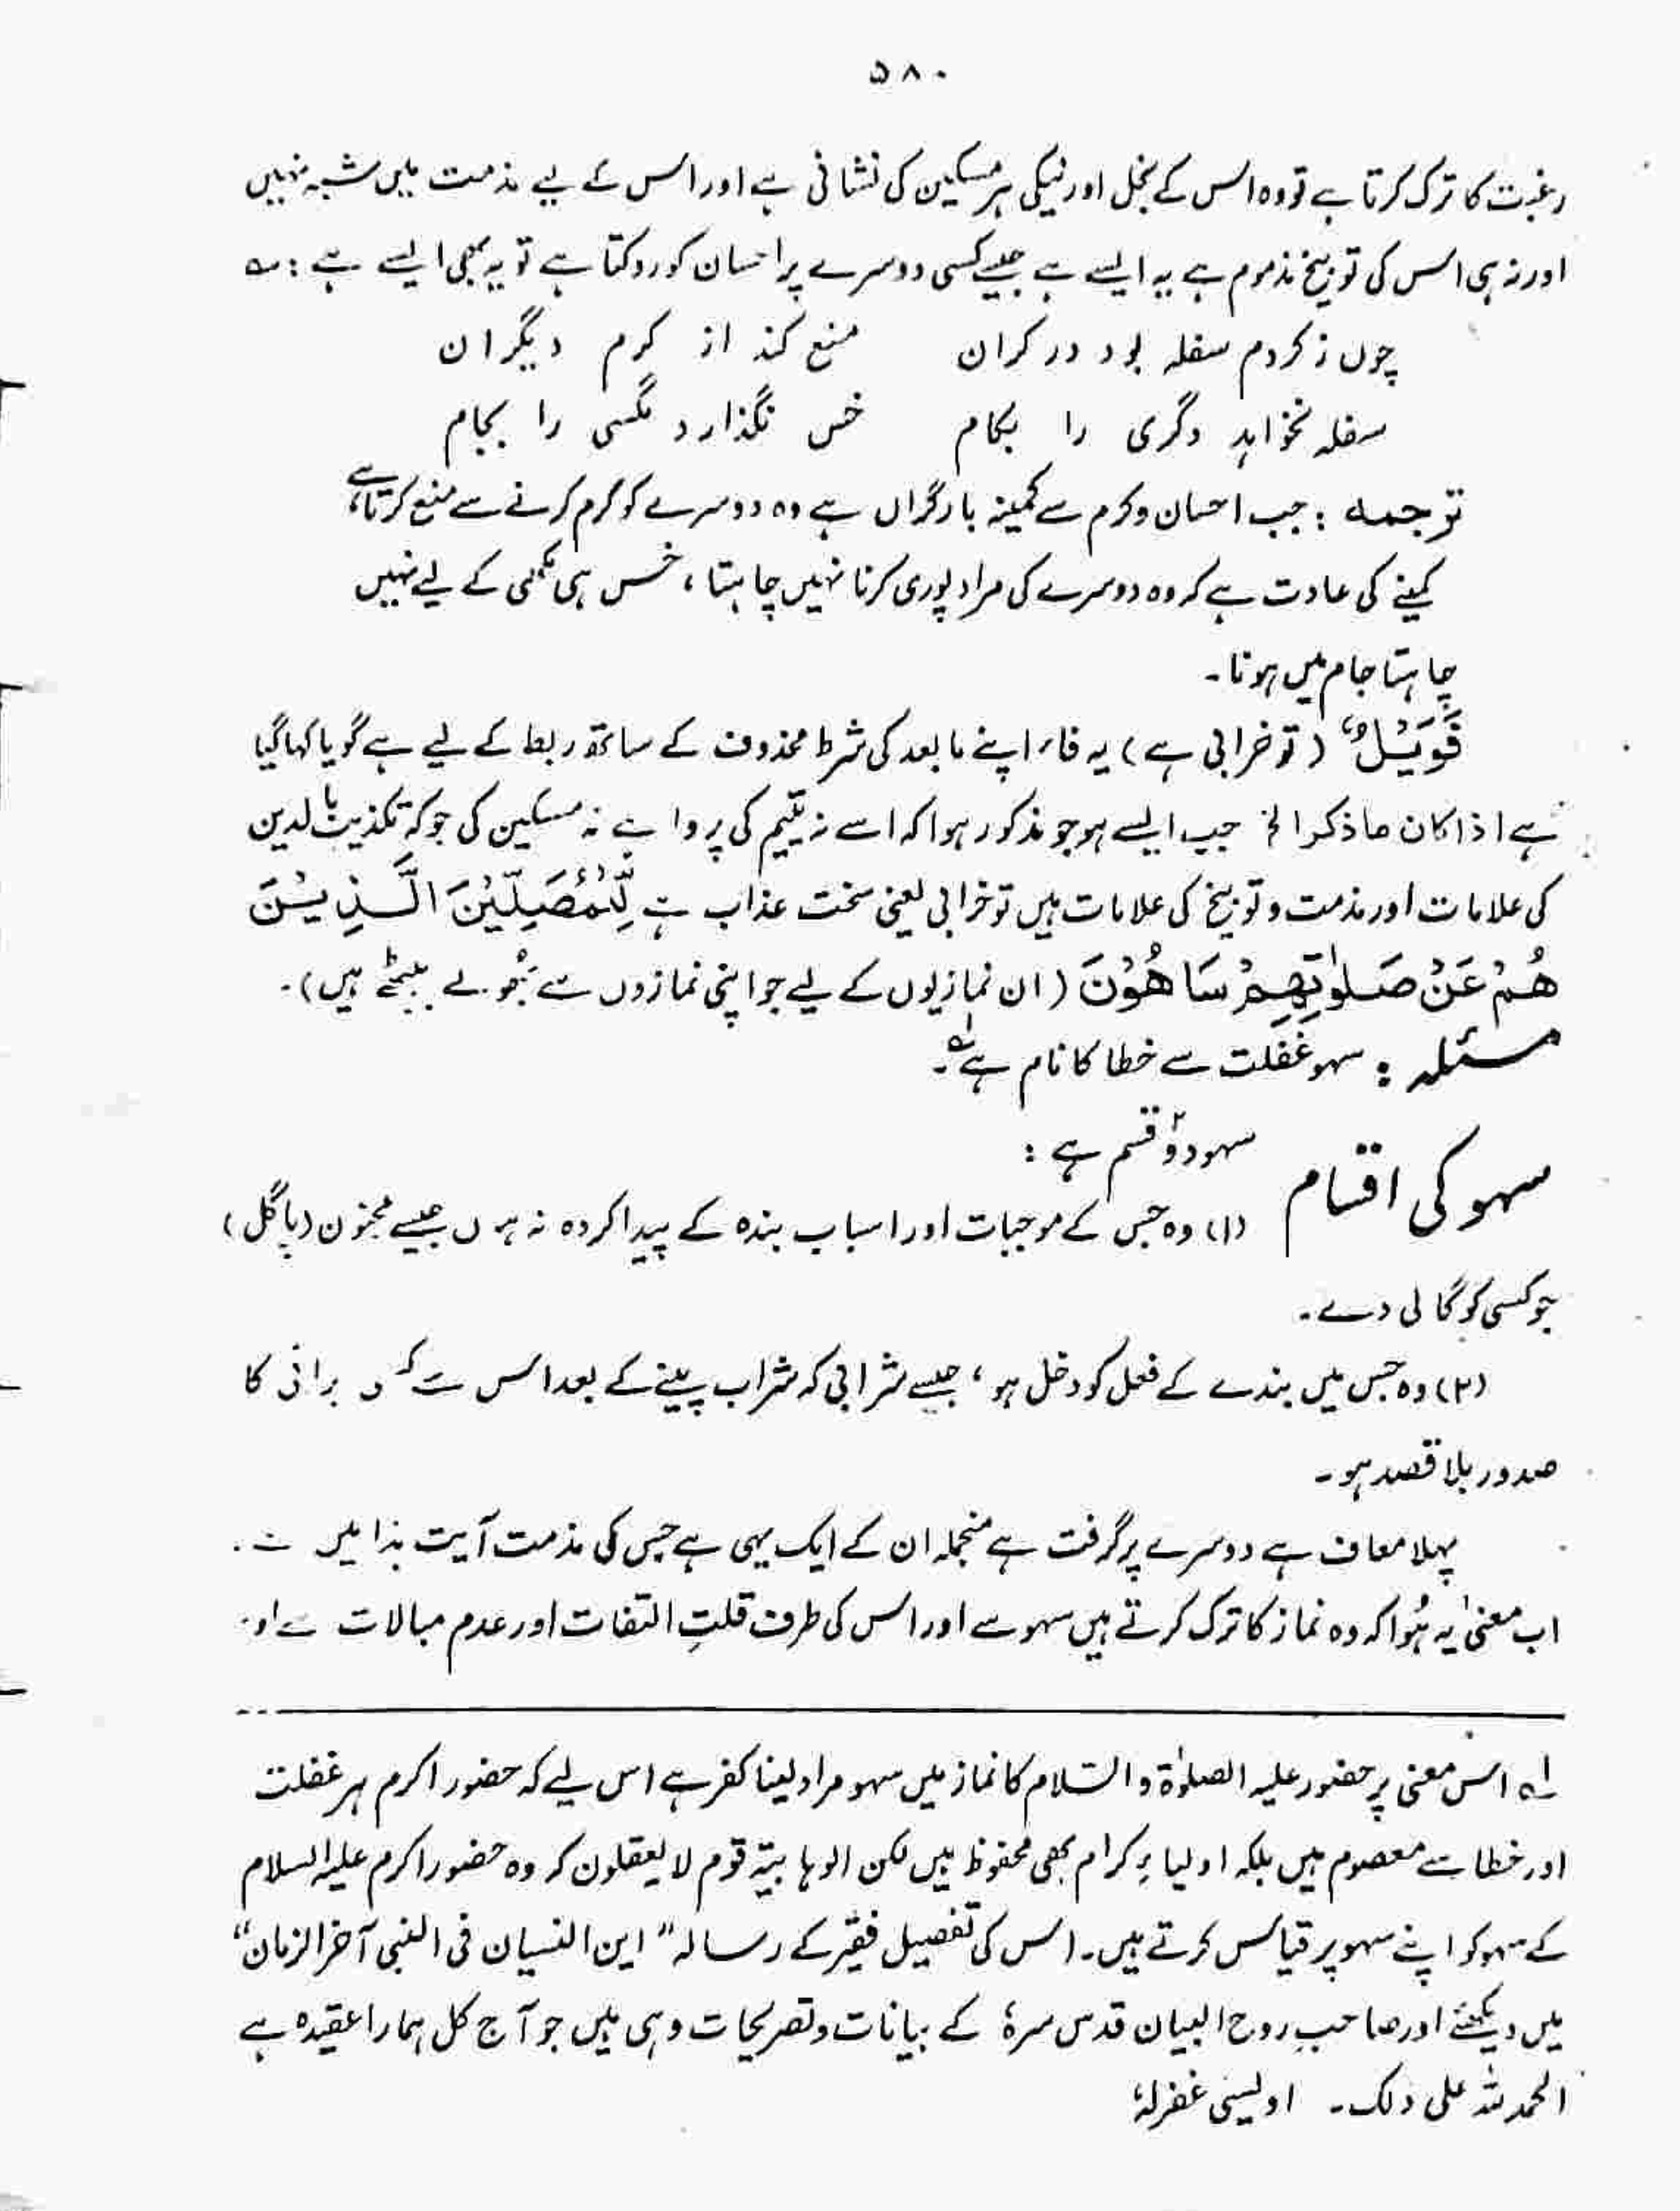 ۵۸۰
رغبت کا ترک کرتا ہے تو وہ اس کے بخل اور نیکی ہر مسکین کی نشانی ہے اور اس کے لیے مذمت میں شبہ نہیں
اور نہ ہی اس کی توبیخ مذموم ہے یہ ایسے ہے جیسے کسی دوسرے پر احسان کو روکتا ہے تو یہ بھی ایسے ہے : ؎
چوں ز کردم سفلہ بود در کران منع کند از کرم دیگران
سفلہ نخواہد دگری را بکام خس نگذارد مگسی را بجام
ترجمہ : جب احسان و کرم سے کمینہ بارگراں ہے وہ دوسرے کو کرم کرنے سے منع کرتا ہے
کمینے کی عادت ہے کہ وہ دوسرے کی مراد پوری کرنا نہیں چاہتا ، خس ہی مکھی کے لیے نہیں
چاہتا جام میں ہونا۔
فَوَیْلٌ (تو خرابی ہے) یہ فاء اپنے مابعد کی شرط محذوف کے ساتھ ربط کے لیے ہے گویا کہا گیا
ہے اذا کان ما ذکر الخ جب ایسے ہو جو مذکور ہوا کہ اسے نہ یتیم کی پروا ہے نہ مسکین کی جو کہ تکذیب بالدین
کی علامات اور مذمت و توبیخ کی علامات ہیں تو خرابی یعنی سخت عذاب ہے لِّلْمُصَلِّیْنَ الَّذِیْنَ
هُمْ عَنْ صَلٰوتِهِمْ سَاهُوْنَ (ان نمازیوں کے لیے جو اپنی نمازوں سے بُھولے بیٹھے ہیں)۔
مسئلہ : سہو غفلت سے خطا کا نام ہے لہ۔
سہو کی اقسام سہو دو۲ قسم ہے :
(۱) وہ جس کے موجبات اور اسباب بندہ کے پیدا کردہ نہ ہوں جیسے مجنون (پاگل)
جو کسی کو گالی دے۔
(۲) وہ جس میں بندے کے فعل کو دخل ہو ، جیسے شرابی کہ شراب پینے کے بعد اس سے کسی برائی کا
صدور بلا قصد ہو۔
پہلا معاف ہے دوسرے پر گرفت ہے منجملہ ان کے ایک یہی ہے جس کی مذمت آیت ہذا میں ہے .
اب معنیٰ یہ ہُوا کہ وہ نماز کا ترک کرتے ہیں سہو سے اور اس کی طرف قلتِ التفات اور عدم مبالات سے اور
لہ اس معنی پر حضور علیہ الصلوٰۃ والسّلام کا نماز میں سہو مراد لینا کفر ہے اس لیے کہ حضور اکرم ہر غفلت
اور خطا سے معصوم ہیں بلکہ اولیاءِ کرام بھی محفوظ ہیں لکن الوہابیۃ قوم لا یعقلون کہ وہ حضور اکرم علیہ السلام
کے سہو کو اپنے سہو پر قیاس کرتے ہیں۔ اس کی تفصیل فقیر کے رسالہ "این النسیان فی النبی آخر الزمان"
میں دیکھئے اور صاحبِ روح البیان قدس سرہٗ کے بیانات و تصریحات وہی ہیں جو آج کل ہمارا عقیدہ ہے
الحمد للہ علیٰ ذلک۔ اویسی غفرلہٗ